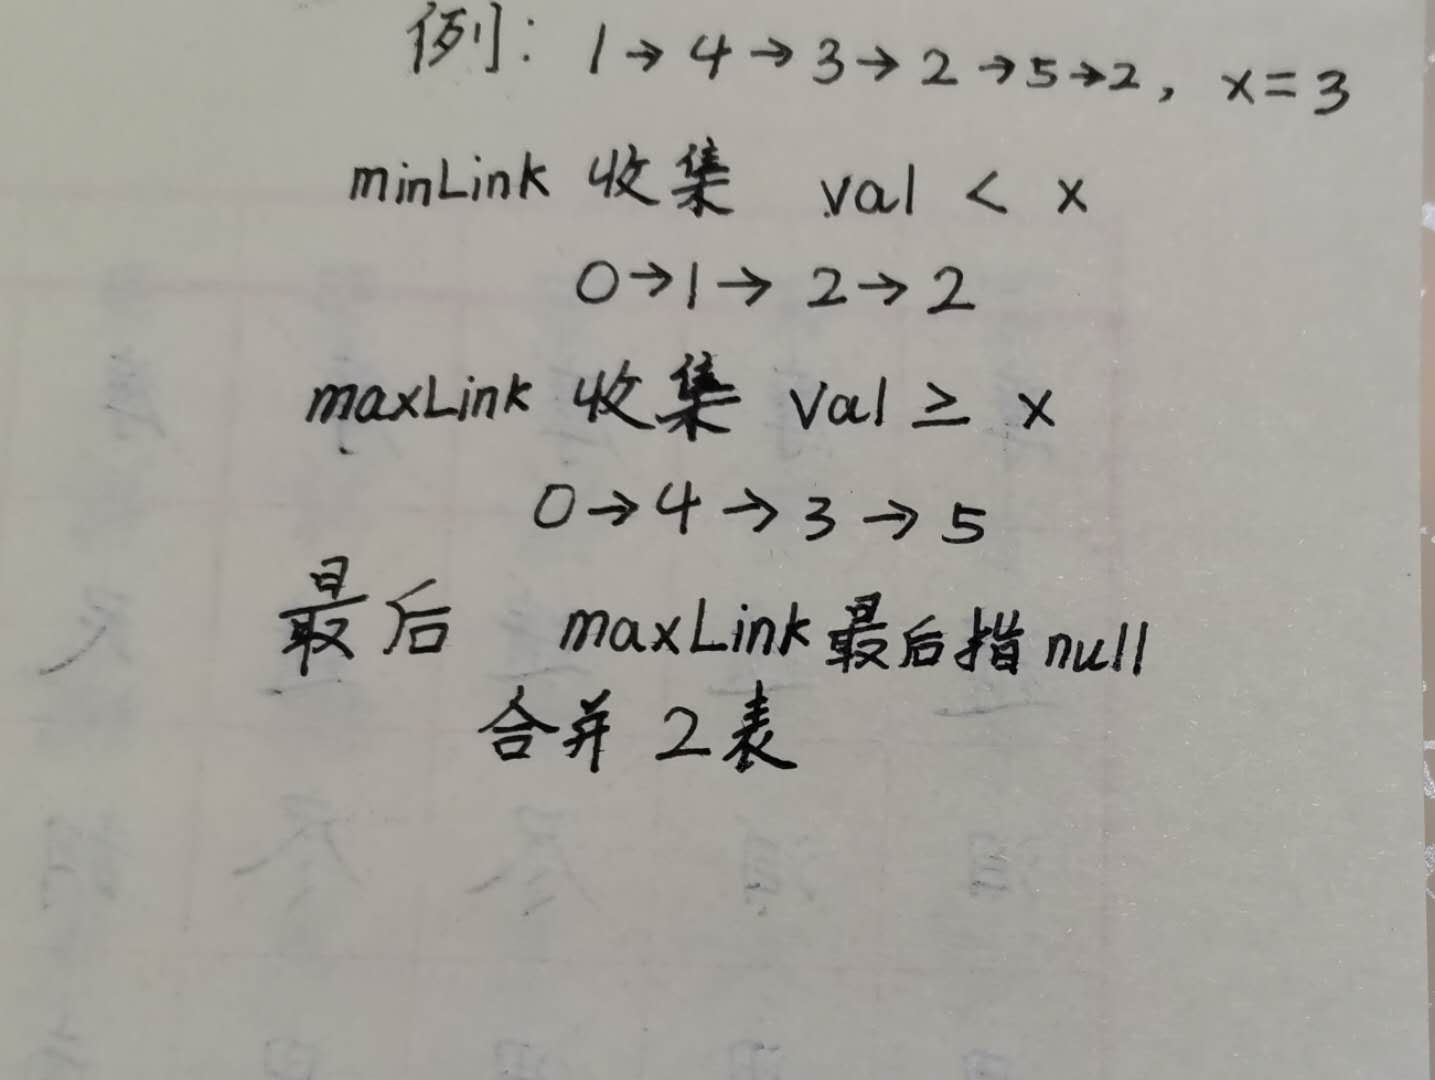 例: 1→4→3→2→5→2, x=3
minLink 收集 val < x
0→1→2→2
maxLink 收集 val ≥ x
0→4→3→5
最后 maxLink最后指null
合并 2表